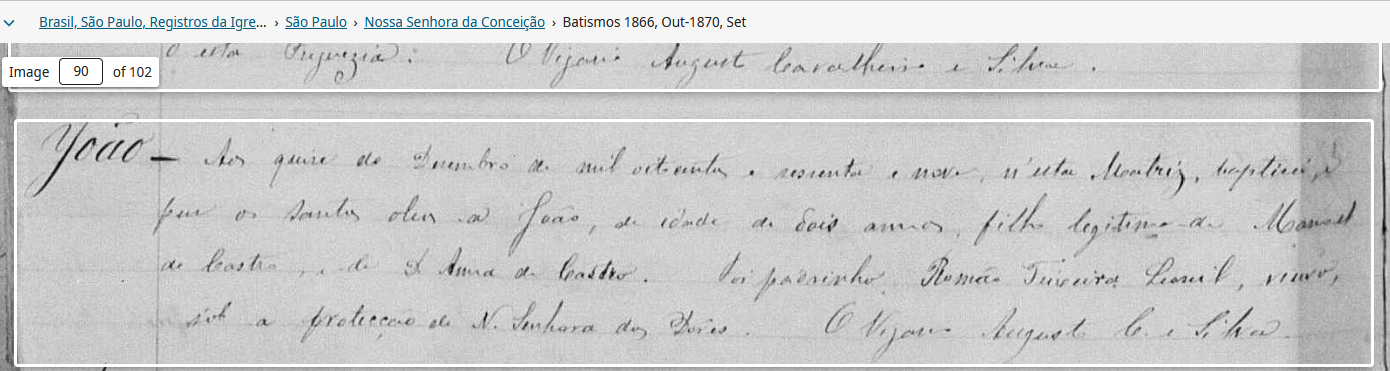 Brasil, São Paulo, Registros da Igre... › São Paulo › Nossa Senhora da Conceição › Batismos 1866, Out-1870, Set
Image 90 of 102
esta Freguezia. O Vigario August Carvalheiro e Silva.
João – Aos quise de Dezembro de mil oitocentos e sessenta e nove, n'esta Matriz, baptisei, e
puz os santos oleos a João, de idade de dois annos, filho legitimo de Manoel
de Castro, e de D. Anna de Castro. Foi padrinho Romão Teixeira Leomil, viuvo,
sob a protecção de N. Senhora das Dores. O Vigario August C. e Silva.